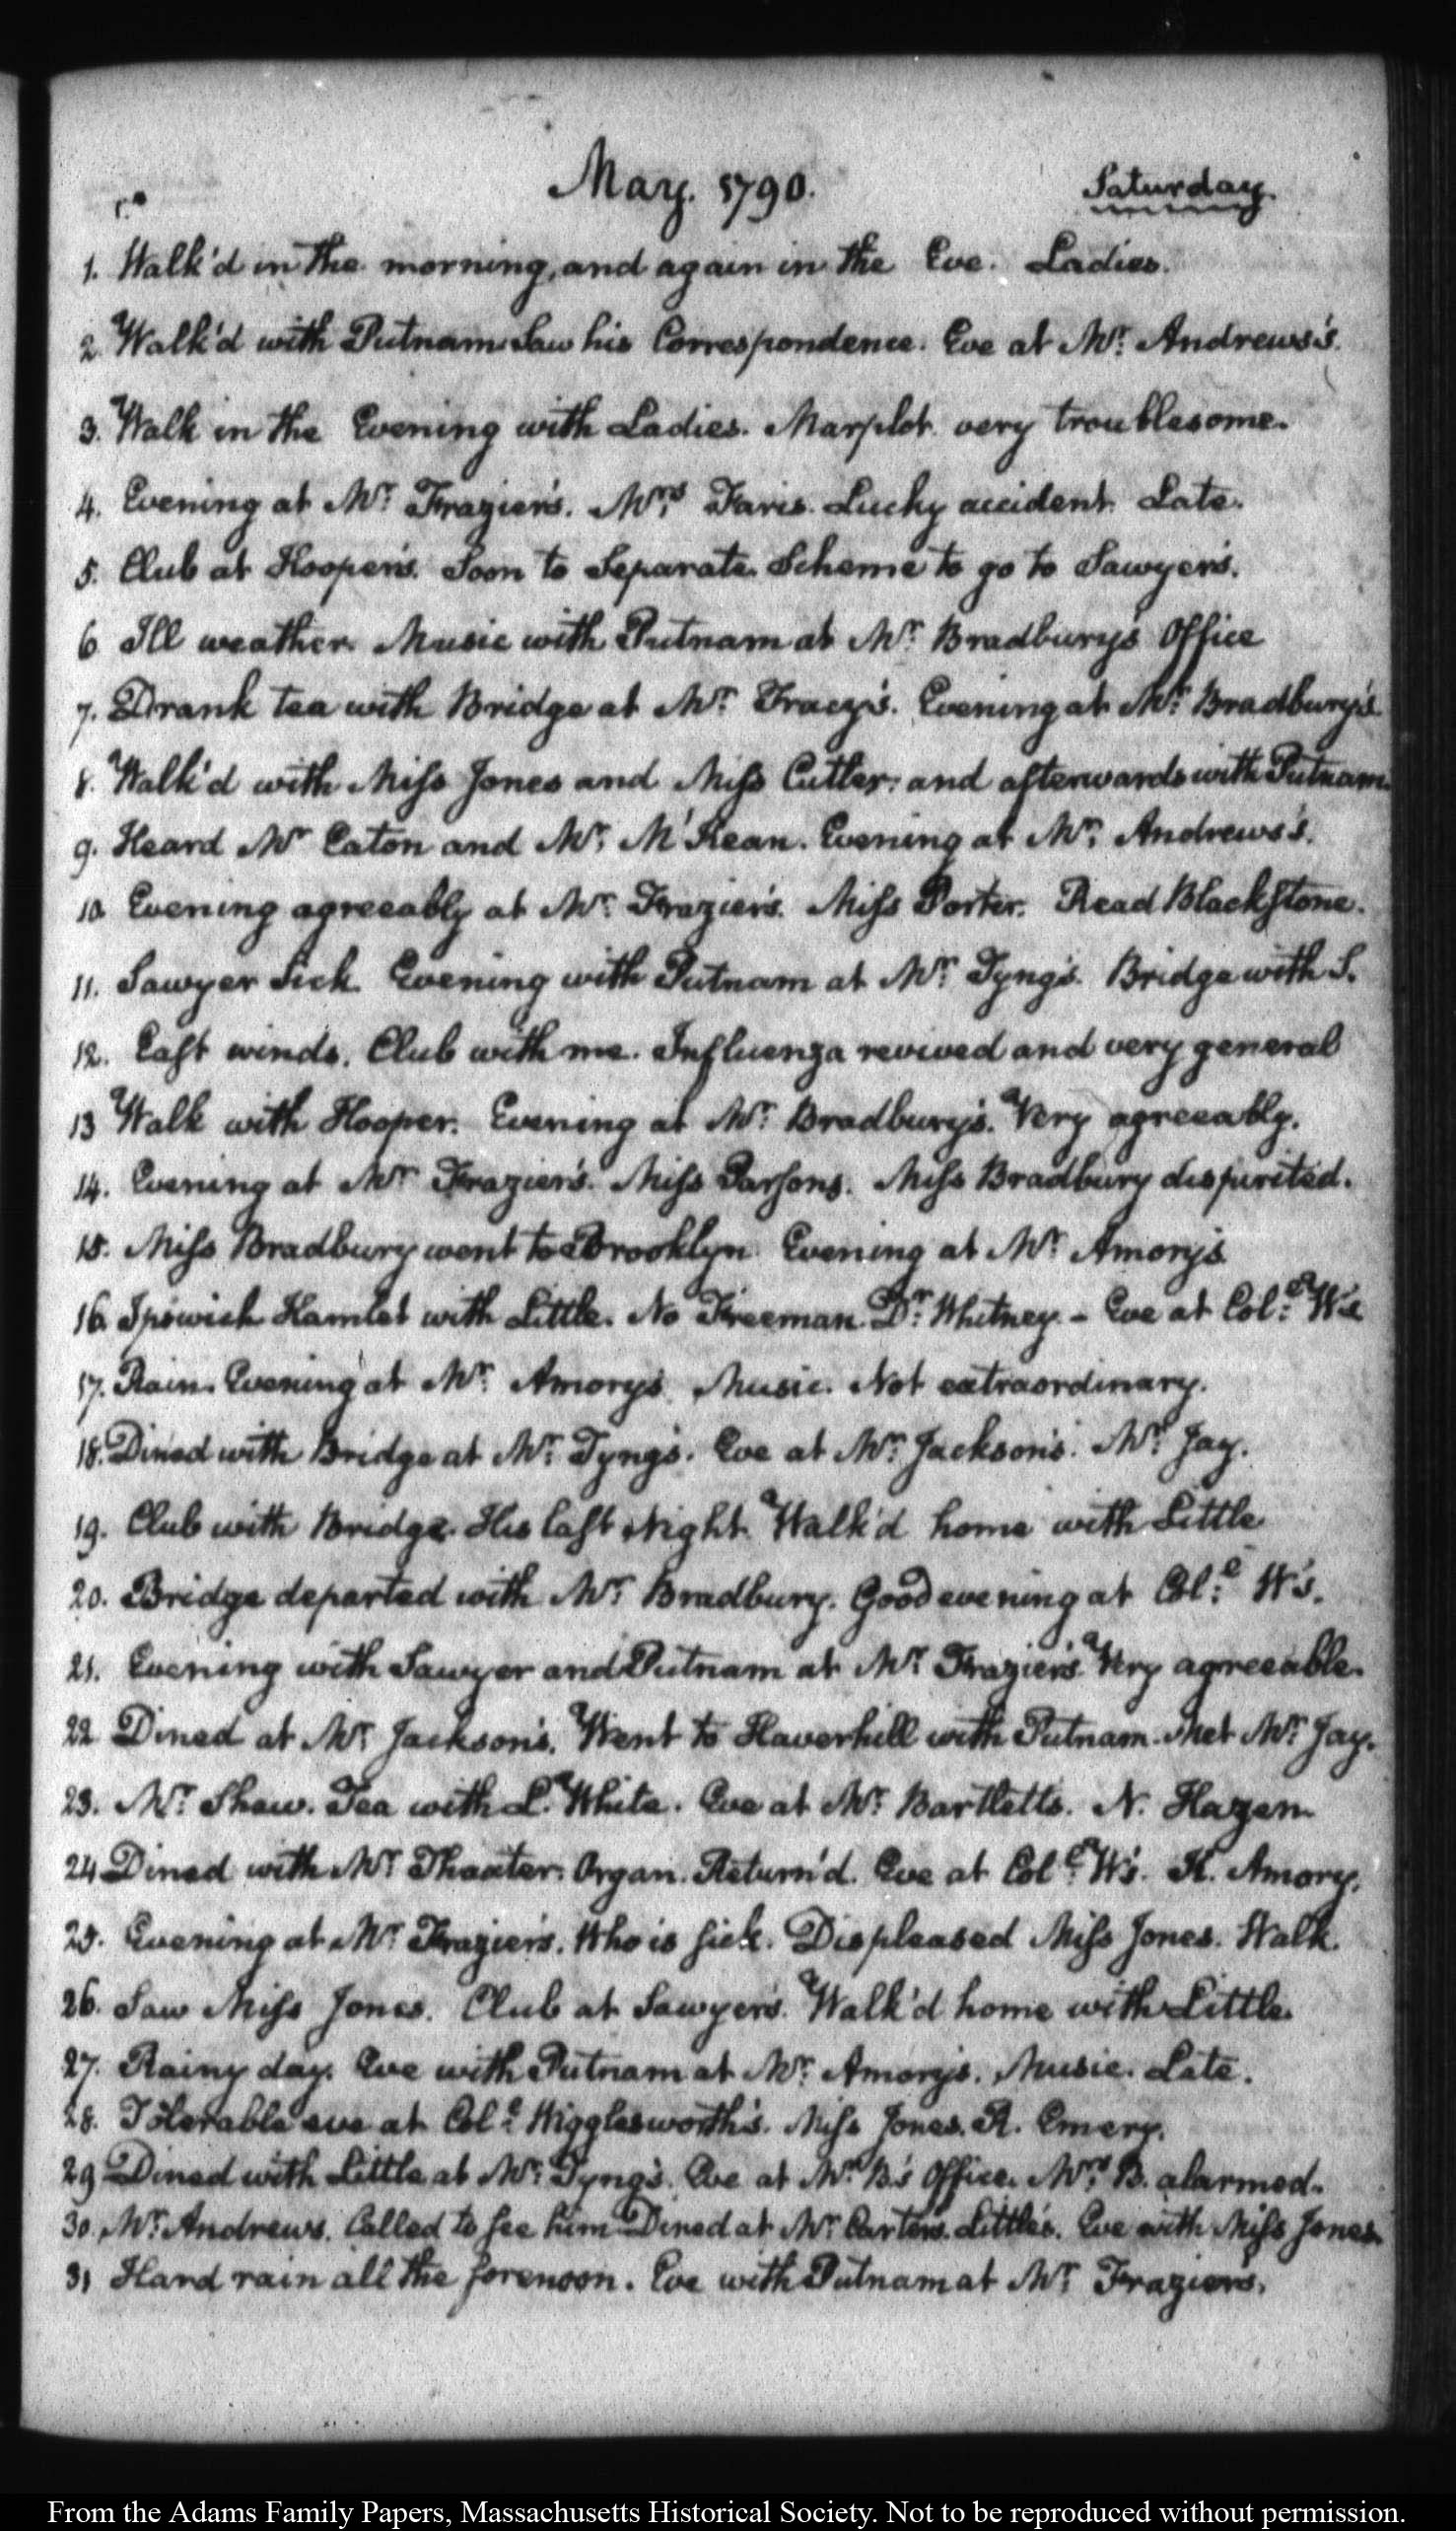 May. 1790.
Saturday.
1. Walk'd in the morning, and again in the Eve. Ladies.
2. Walk'd with Putnam. Saw his Correspondence. Eve at Mr. Andrews's.
3. Walk in the Evening with Ladies. Marplot very troublesome.
4. Evening at Mr. Frazier's. Mrs. Faris. Lucky accident. Late.
5. Club at Hooper's. Soon to Separate. Scheme to go to Sawyer's.
6. Ill weather. Music with Putnam at Mr. Bradbury's Office
7. Drank tea with Bridge at Mr. Tracy's. Evening at Mr. Bradbury's
8. Walk'd with Miss Jones and Miss Cutler; and afterwards with Putnam.
9. Heard Mr. Eaton and Mr. M'Kean. Evening at Mr. Andrews's.
10. Evening agreeably at Mr. Frazier's. Miss Porter. Read Blackstone.
11. Sawyer Sick. Evening with Putnam at Mr. Tyng's. Bridge with S.
12. East winds. Club with me. Influenza revived and very general
13 Walk with Hooper. Evening at Mr. Bradbury's. Very agreeably.
14. Evening at Mr. Frazier's. Miss Parsons. Miss Bradbury dispirited.
15. Miss Bradbury went to Brooklyn. Evening at Mr. Amory's
16. Ipswich Hamlet with Little. No Freeman. Dr. Whitney. – Eve at Col: W's
17. Rain. Evening at Mr. Amory's. Music. Not extraordinary.
18. Dined with Bridge at Mr. Tyng's. Eve at Mr. Jackson's. Mr. Jay.
19. Club with Bridge. His last Night. Walk'd home with Little
20. Bridge departed with Mr. Bradbury. Good evening at Col: W's.
21. Evening with Sawyer and Putnam at Mr. Frazier's. Very agreeable.
22 Dined at Mr. Jackson's. Went to Haverhill with Putnam. Met Mr. Jay.
23. Mr. Shaw. Tea with L. White. Eve at Mr. Bartletts. N. Hazen
24 Dined with Mr. Thaxter. Organ. Return'd. Eve at Col: W's. K. Amory.
25. Evening at Mr. Frazier's. Who is sick. Displeased Miss Jones. Walk.
26. Saw Miss Jones. Club at Sawyer's. Walk'd home with Little.
27. Rainy day. Eve with Putnam at Mr. Amory's. Music. Late.
28. Tolerable eve at Col: Wigglesworth's. Miss Jones. R. Emery.
29 Dined with Little at Mr. Tyng's. Eve at Mr. B's Office. Mrs. B. alarmed.
30. Mr. Andrews. Called to see him. Dined at Mr. Carter's. Little's. Eve with Miss Jones.
31 Hard rain all the forenoon. Eve with Putnam at Mr. Frazier's.
From the Adams Family Papers, Massachusetts Historical Society. Not to be reproduced without permission.